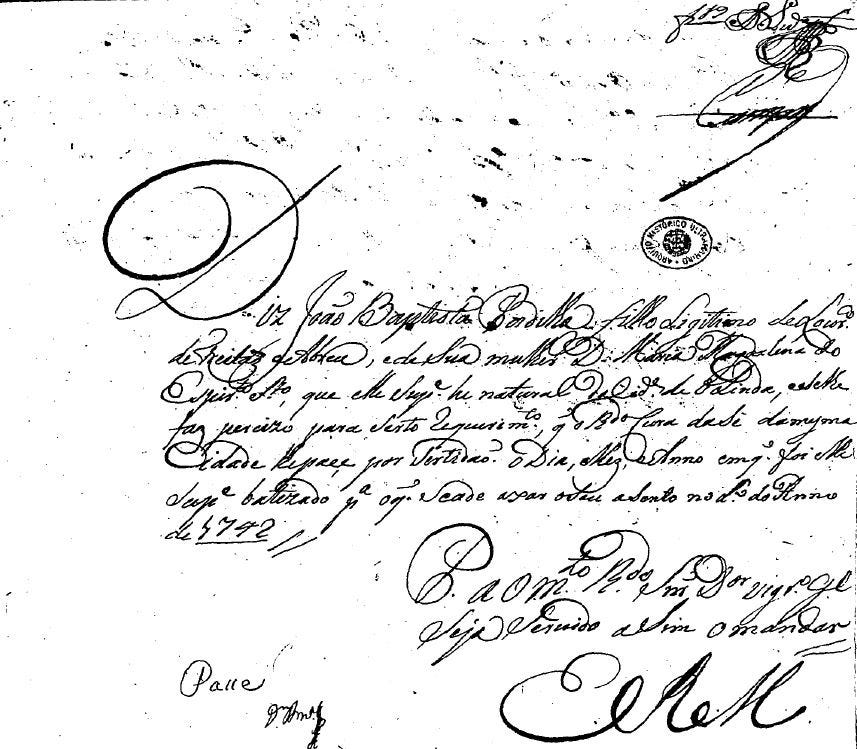 ARQUIVO HISTÓRICO ULTRAMARINO
Diz João Baptista filho Legitimo de Lour.ço
de Freitas de Abreu, e de Sua mulher D. Maria Magdalena do
Espir.to S.to, que elle Sup.e he natural da Cid.e de Olinda, e Se lhe
faz percizo para Serto Requerim.to, q' o R.do Cura da Sé da mesma
Cidade lhe pace por Sertidaõ o Dia, Mez, e Anno em q' foi elle
Sup.e batizado p.a o q' Se ade axar o Seu asento no L.o do Anno
de 1742
P. a O M.to R.do Snr. D.or Vigr.o G.l
Seja Servido asim o mandar
E R M
Passe